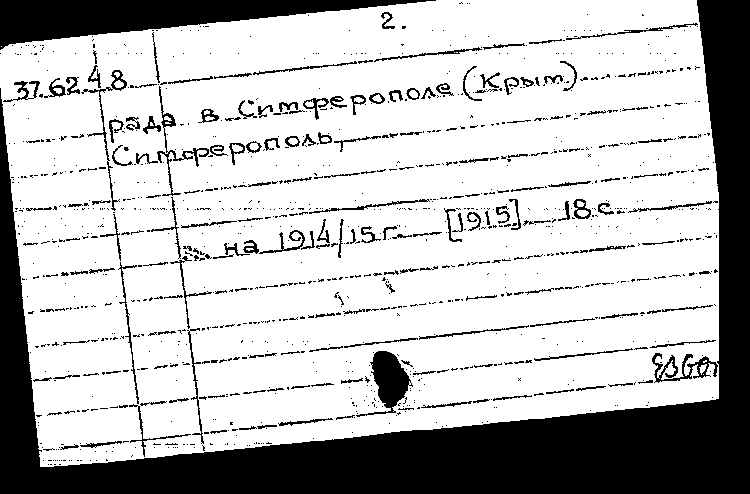 2.
37.62.48
рада в Симферополе (Крым)
Симферополь,
на 1914/15 г. [1915]. 18 с.